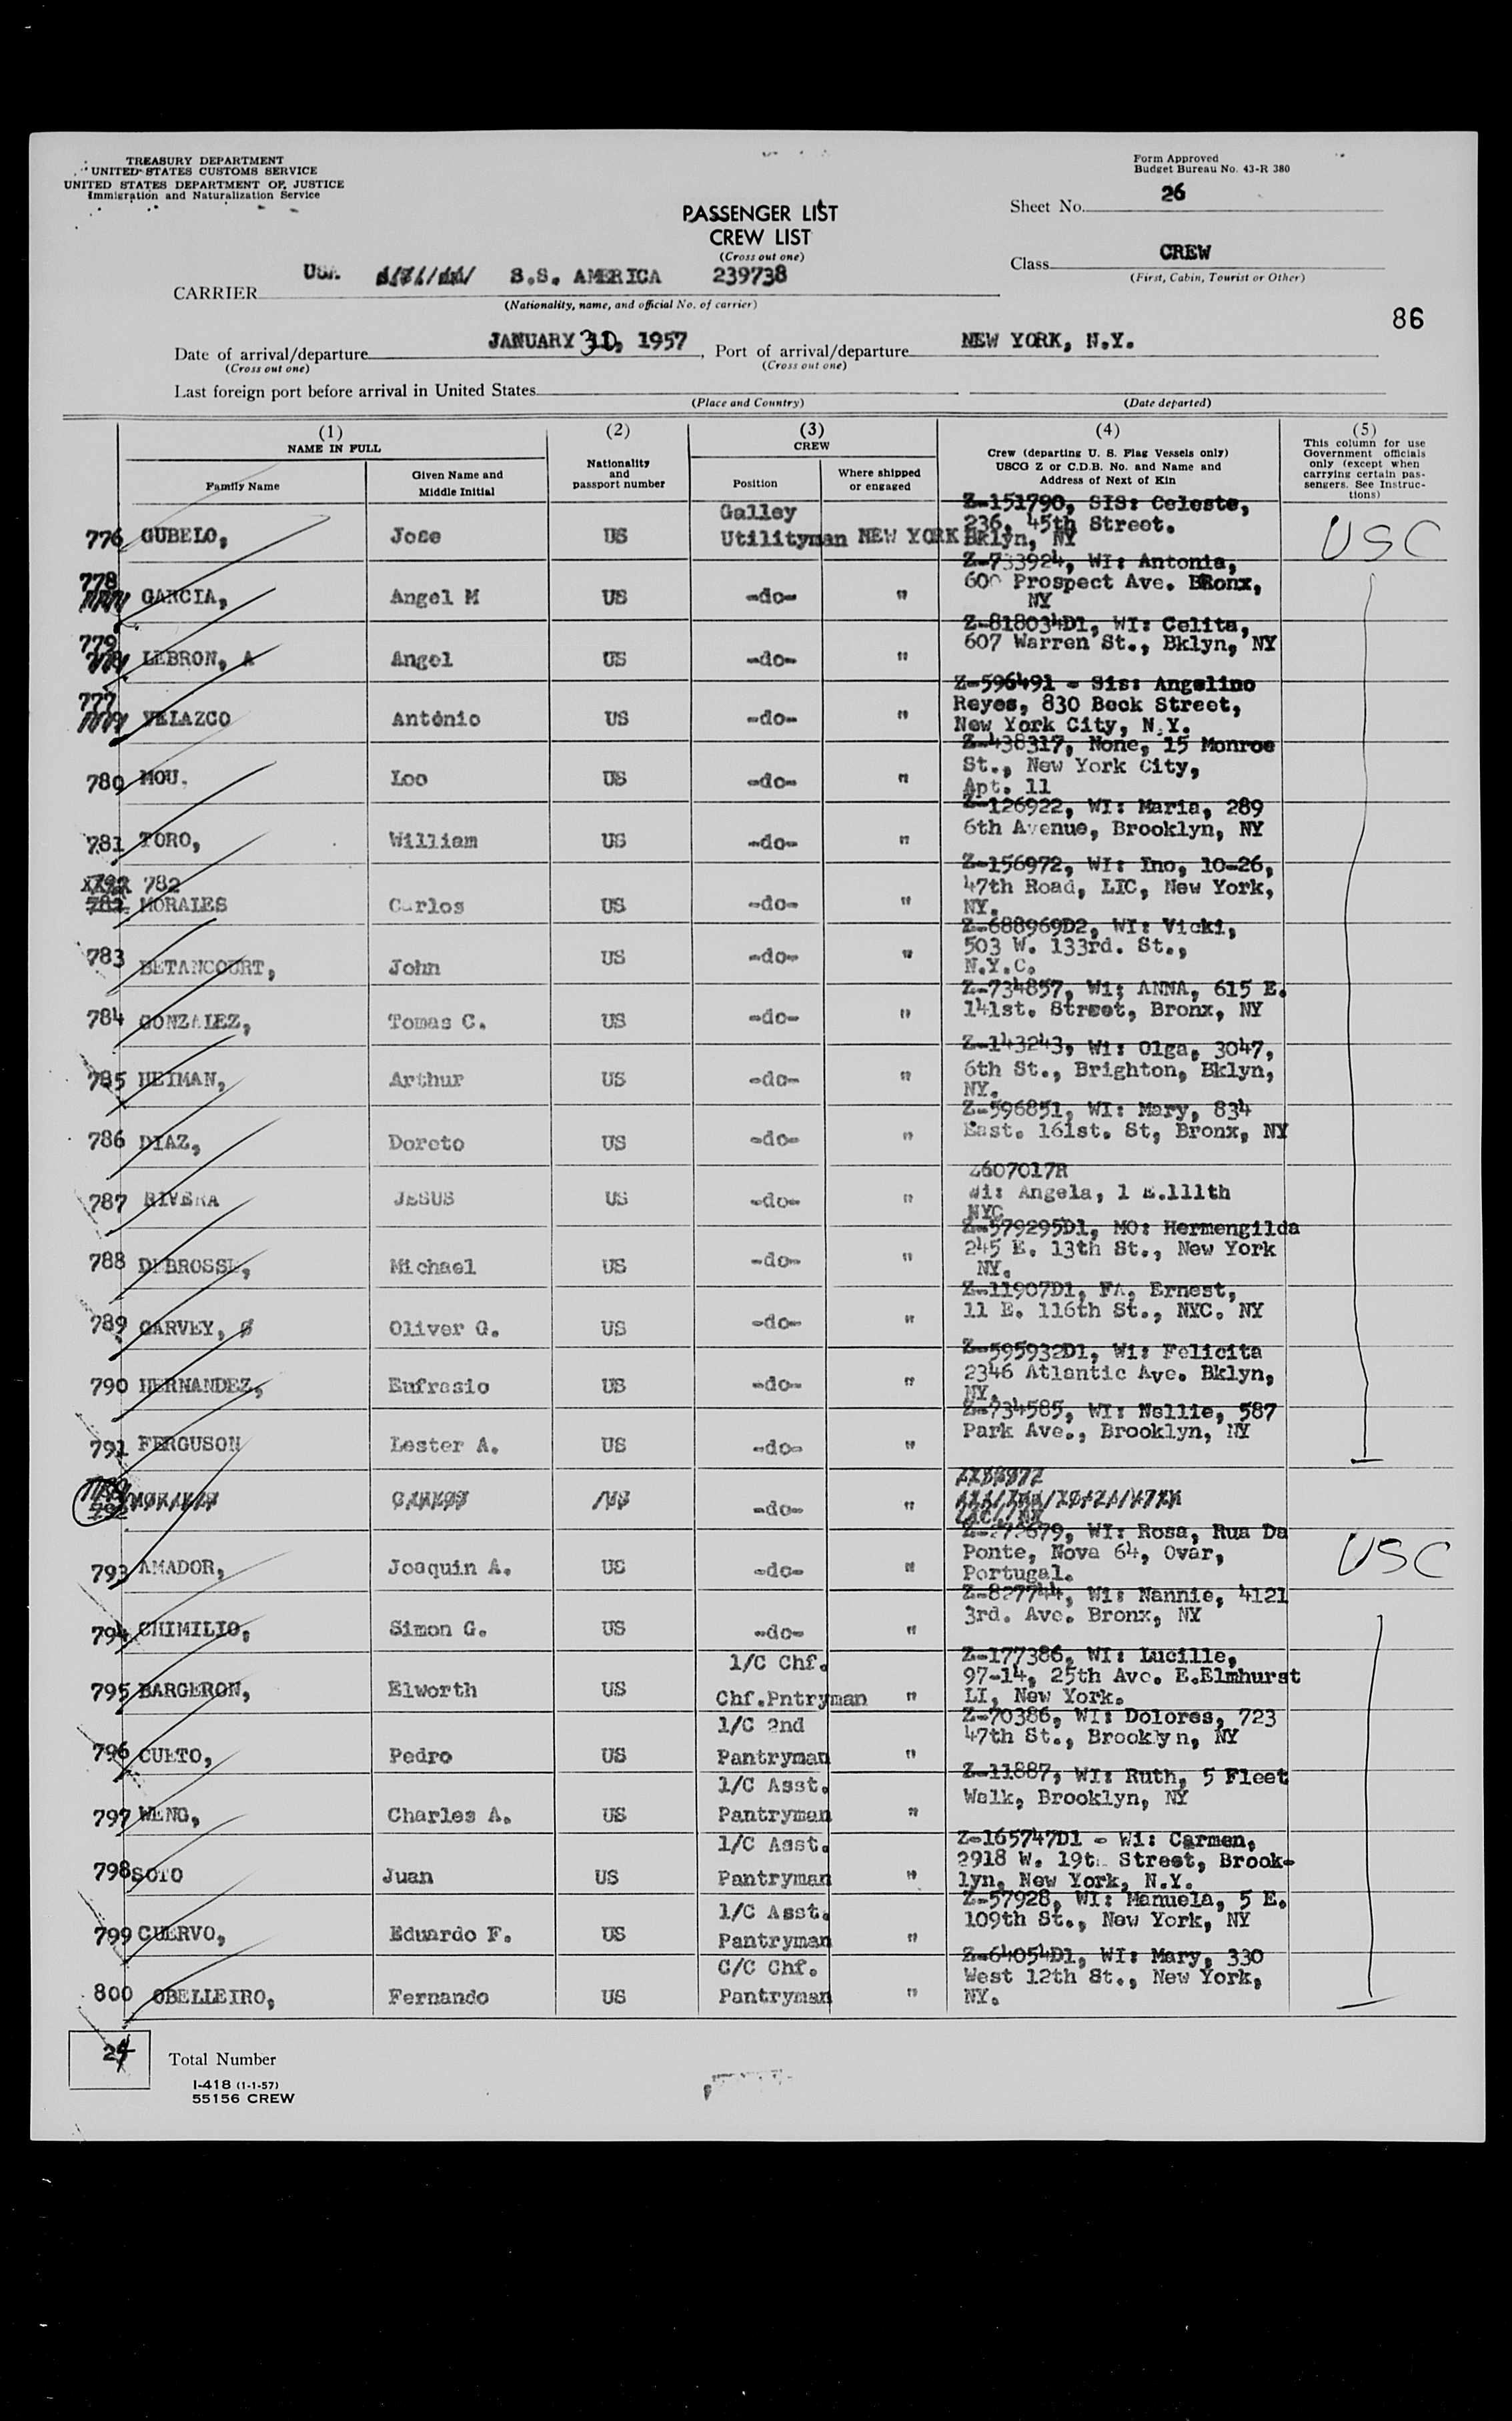 TREASURY DEPARTMENT
UNITED STATES CUSTOMS SERVICE
UNITED STATES DEPARTMENT OF JUSTICE
Immigration and Naturalization Service
Form Approved
Budget Bureau No. 43-R 380
Sheet No. 26
PASSENGER LIST
CREW LIST
(Cross out one)
Class CREW
(First, Cabin, Tourist or Other)
CARRIER USA S.S. AMERICA 239738
(Nationality, name, and official No. of carrier)
86
Date of arrival/departure JANUARY 30, 1957, Port of arrival/departure NEW YORK, N.Y.
(Cross out one) (Cross out one)
Last foreign port before arrival in United States
(Place and Country) (Date departed)
(1) NAME IN FULL
Family Name
Given Name and Middle Initial
(2) Nationality and passport number
(3) CREW
Position
Where shipped or engaged
(4) Crew (departing U. S. Flag Vessels only) USCG Z or C.D.B. No. and Name and Address of Next of Kin
(5) This column for use Government officials only (except when carrying certain passengers. See Instructions)
776 GUBELO, Jose US Galley Utilityman NEW YORK Z-151790, SIS: Celeste, 236, 45th Street. Bklyn, NY USC
778 GARCIA, Angel M US -do- " Z-733924, WI: Antonia, 600 Prospect Ave. Bronx, NY
779 LEBRON, A Angel US -do- " Z-818034D1, WI: Celita, 607 Warren St., Bklyn, NY
777 VELAZCO Antonio US -do- " Z-596491 - Sis: Angelino Reyes, 830 Beck Street, New York City, N.Y.
780 MOU. Loo US -do- " Z-438317, None, 15 Monroe St., New York City, Apt. 11
781 TORO, William US -do- " Z-126922, WI: Maria, 289 6th Avenue, Brooklyn, NY
782 MORALES Carlos US -do- " Z-156972, WI: Ino, 10-26, 47th Road, LIC, New York, NY.
783 BETANCOURT, John US -do- " Z-688969D2, WI: Vicki, 503 W. 133rd. St., N.Y.C.
784 GONZALEZ, Tomas C. US -do- " Z-734857, Wi; ANNA, 615 E. 141st. Street, Bronx, NY
785 HEIMAN, Arthur US -do- " Z-143243, Wi: Olga, 3047, 6th St., Brighton, Bklyn, NY.
786 DIAZ, Doreto US -do- " Z-596851, WI: Mary, 834 East. 161st. St, Bronx, NY
787 RIVERA JESUS US -do- " Z607017R Wi: Angela, 1 E.111th NYC
788 DEBROSSE, Michael US -do- " Z-579295D1, MO: Hermengilda 245 E. 13th St., New York NY.
789 GARVEY, Oliver G. US -do- " Z-11907D1, FA, Ernest, 11 E. 116th St., NYC. NY
790 HERNANDEZ, Eufrasio US -do- " Z-595932D1, Wi: Felicita 2346 Atlantic Ave. Bklyn, NY.
791 FERGUSON Lester A. US -do- " Z-734585, WI: Nellie, 587 Park Ave., Brooklyn, NY
792 -do- "
793 AMADOR, Joaquin A. US -do- " Z-272679, WI: Rosa, Rua Da Ponte, Nova 64, Ovar, Portugal. USC
794 CHIMILIO, Simon G. US -do- " Z-827744, Wi: Nannie, 4121 3rd. Ave. Bronx, NY
795 BARGERON, Elworth US 1/C Chf. Chf.Pntryman " Z-177386, WI: Lucille, 97-14, 25th Ave. E.Elmhurst LI, New York.
796 CUETO, Pedro US 1/C 2nd Pantryman " Z-70386, WI: Dolores, 723 47th St., Brooklyn, NY
797 WENG, Charles A. US 1/C Asst. Pantryman " Z-11887, WI: Ruth, 5 Fleet Walk, Brooklyn, NY
798 SOTO Juan US 1/C Asst. Pantryman " Z-165747D1 - Wi: Carmen, 2918 W. 19th Street, Brooklyn, New York, N.Y.
799 CUERVO, Eduardo F. US 1/C Asst. Pantryman " Z-57928, WI: Manuela, 5 E. 109th St., New York, NY
800 OBELLEIRO, Fernando US C/C Chf. Pantryman " Z-64054D1, WI: Mary, 330 West 12th St., New York, NY.
24 Total Number
I-418 (1-1-57)
55156 CREW